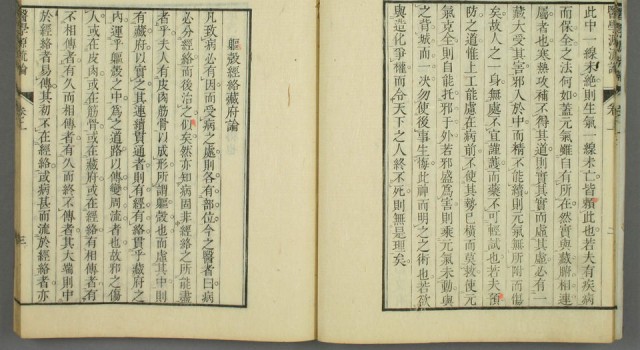 醫學源流論 卷上 二
此中一線未絕則生氣一線未亡皆賴此也若夫有疾病
而保全之法何如蓋元氣雖自有所在然實與臟腑相連
屬者也寒熱攻補不得其道則實其實而虛其虛必有一
藏大受其害邪入於中而精不能續則元氣無所附而傷
矣故人之一身無處不宜謹護而藥不可輕試也若夫預
防之道惟上工能慮在病前不使其勢已橫而莫救使元
氣克全則自能托邪于外若邪盛為害則乘元氣未動與
之背城而一決勿使後事生悔此神而明之之術也若欲
與造化爭權而令天下之人終不死則無是理矣
軀殼經絡藏府論
凡致病必有因而受病之處則各有部位今之醫者曰病
必分經絡而後治之似矣然亦知病固非經絡之所能盡
者乎夫人有皮肉筋骨以成形所謂軀殼也而虛其中則
有藏府以實之其連續貫通者則有經有絡貫乎藏府之
內運乎軀殼之中為之道路以傳變周流者也故邪之傷
人或在皮肉或在筋骨或在藏府或在經絡有相傳者有
不相傳者有久而相傳者有久而終不傳者其大端則中
於經絡者易傳其初不在經絡或病甚而流於經絡者亦
醫學源流論 卷上 三